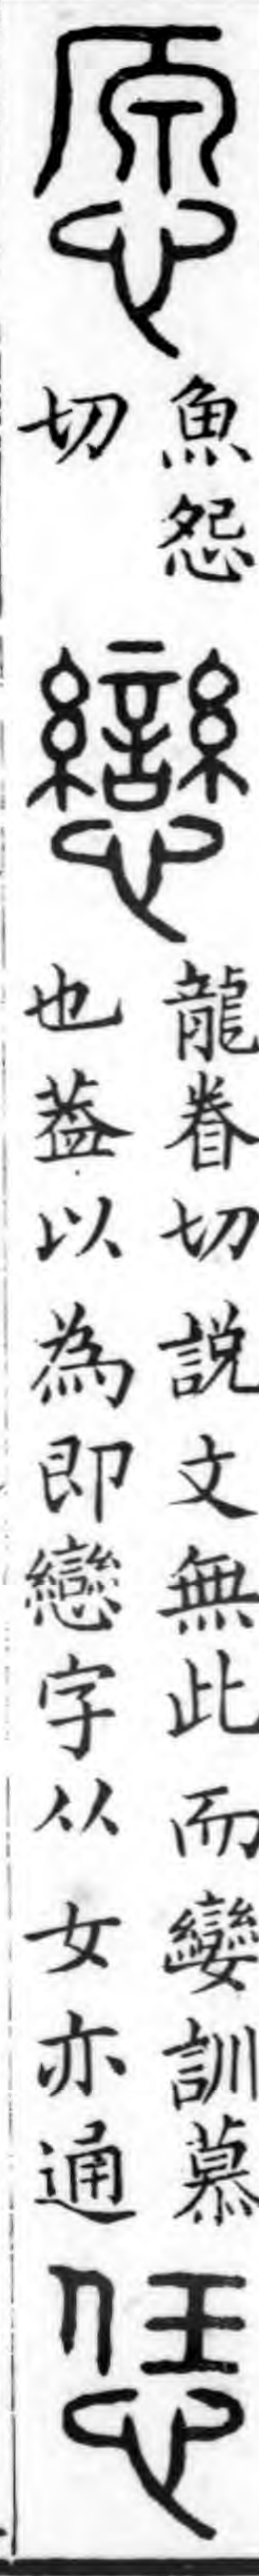 愿
魚怨
切
戀
龍眷切説文無此而孌訓慕
也葢以為即戀字从女亦通
恁